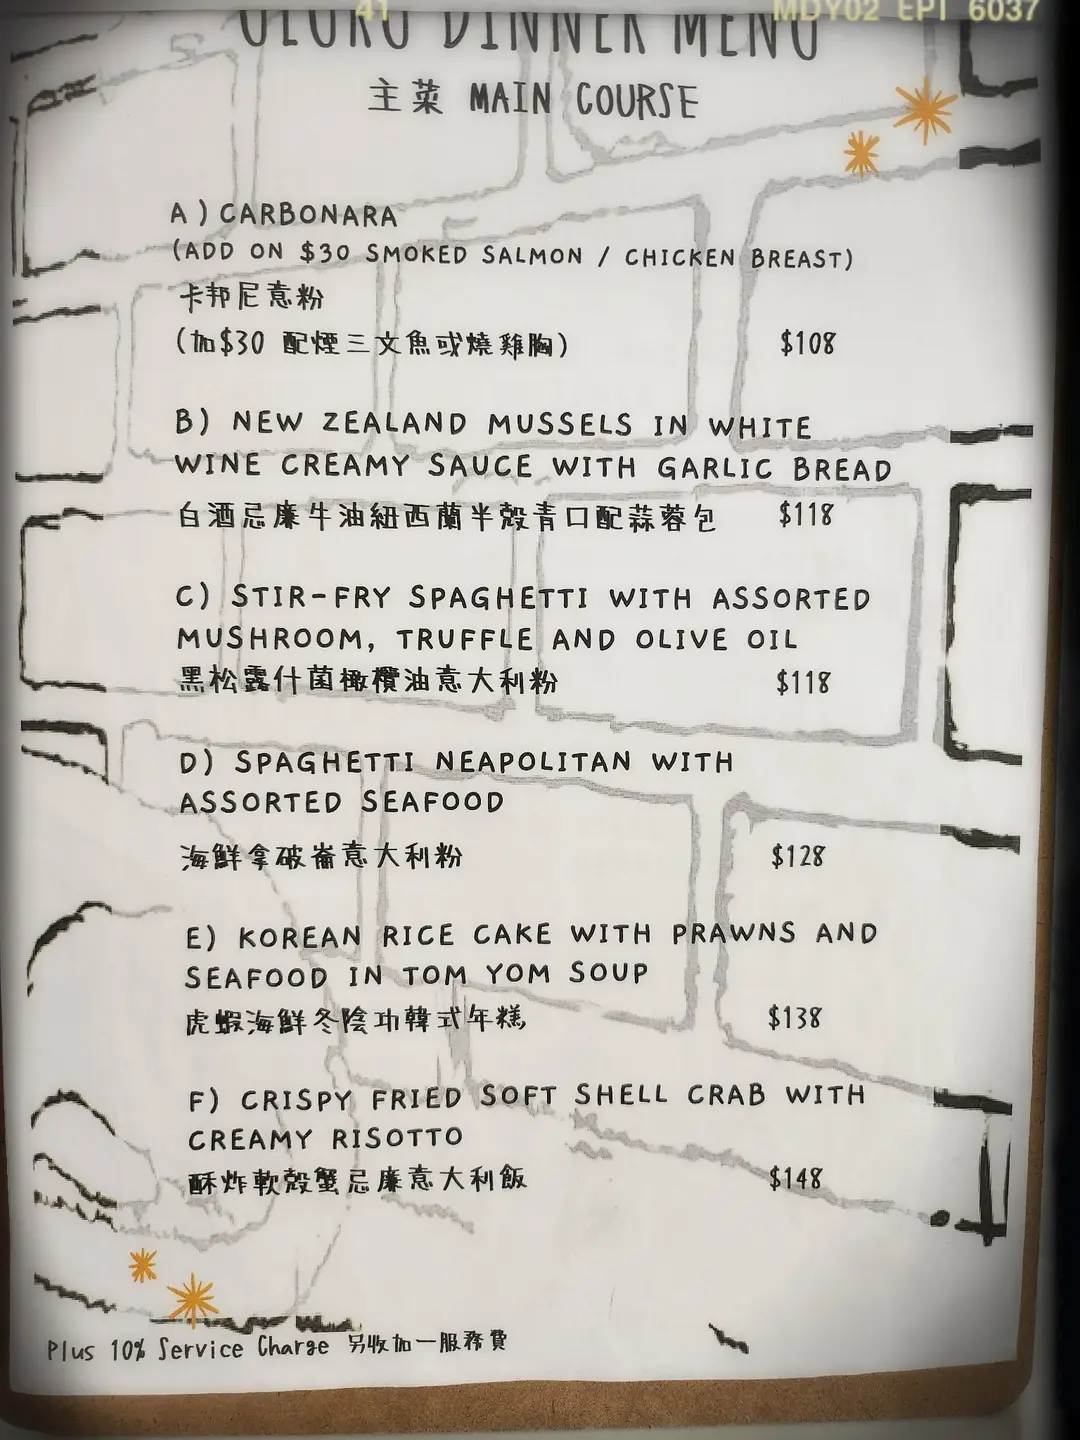 41 MDY02 EPI 6037
DINNER MENU
主菜 MAIN COURSE
A) CARBONARA
(ADD ON $30 SMOKED SALMON / CHICKEN BREAST)
卡邦尼意粉
(加$30 配煙三文魚或燒雞胸) $108
B) NEW ZEALAND MUSSELS IN WHITE
WINE CREAMY SAUCE WITH GARLIC BREAD
白酒忌廉牛油紐西蘭半殼青口配蒜蓉包 $118
C) STIR-FRY SPAGHETTI WITH ASSORTED
MUSHROOM, TRUFFLE AND OLIVE OIL
黑松露什菌橄欖油意大利粉 $118
D) SPAGHETTI NEAPOLITAN WITH
ASSORTED SEAFOOD
海鮮拿破崙意大利粉 $128
E) KOREAN RICE CAKE WITH PRAWNS AND
SEAFOOD IN TOM YOM SOUP
虎蝦海鮮冬陰功韓式年糕 $138
F) CRISPY FRIED SOFT SHELL CRAB WITH
CREAMY RISOTTO
酥炸軟殼蟹忌廉意大利飯 $148
Plus 10% Service Charge 另收加一服務費